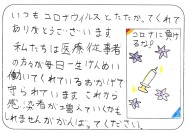 いつもコロナウイルスとたたかってくれて
ありがとうございます
私たちは医療従事者
の方々が毎日一生けんめい
働いてくれているおかげで
守られています これから
感染者が増えていくかも
しれませんががんばってください。
コロナに負け
るな!